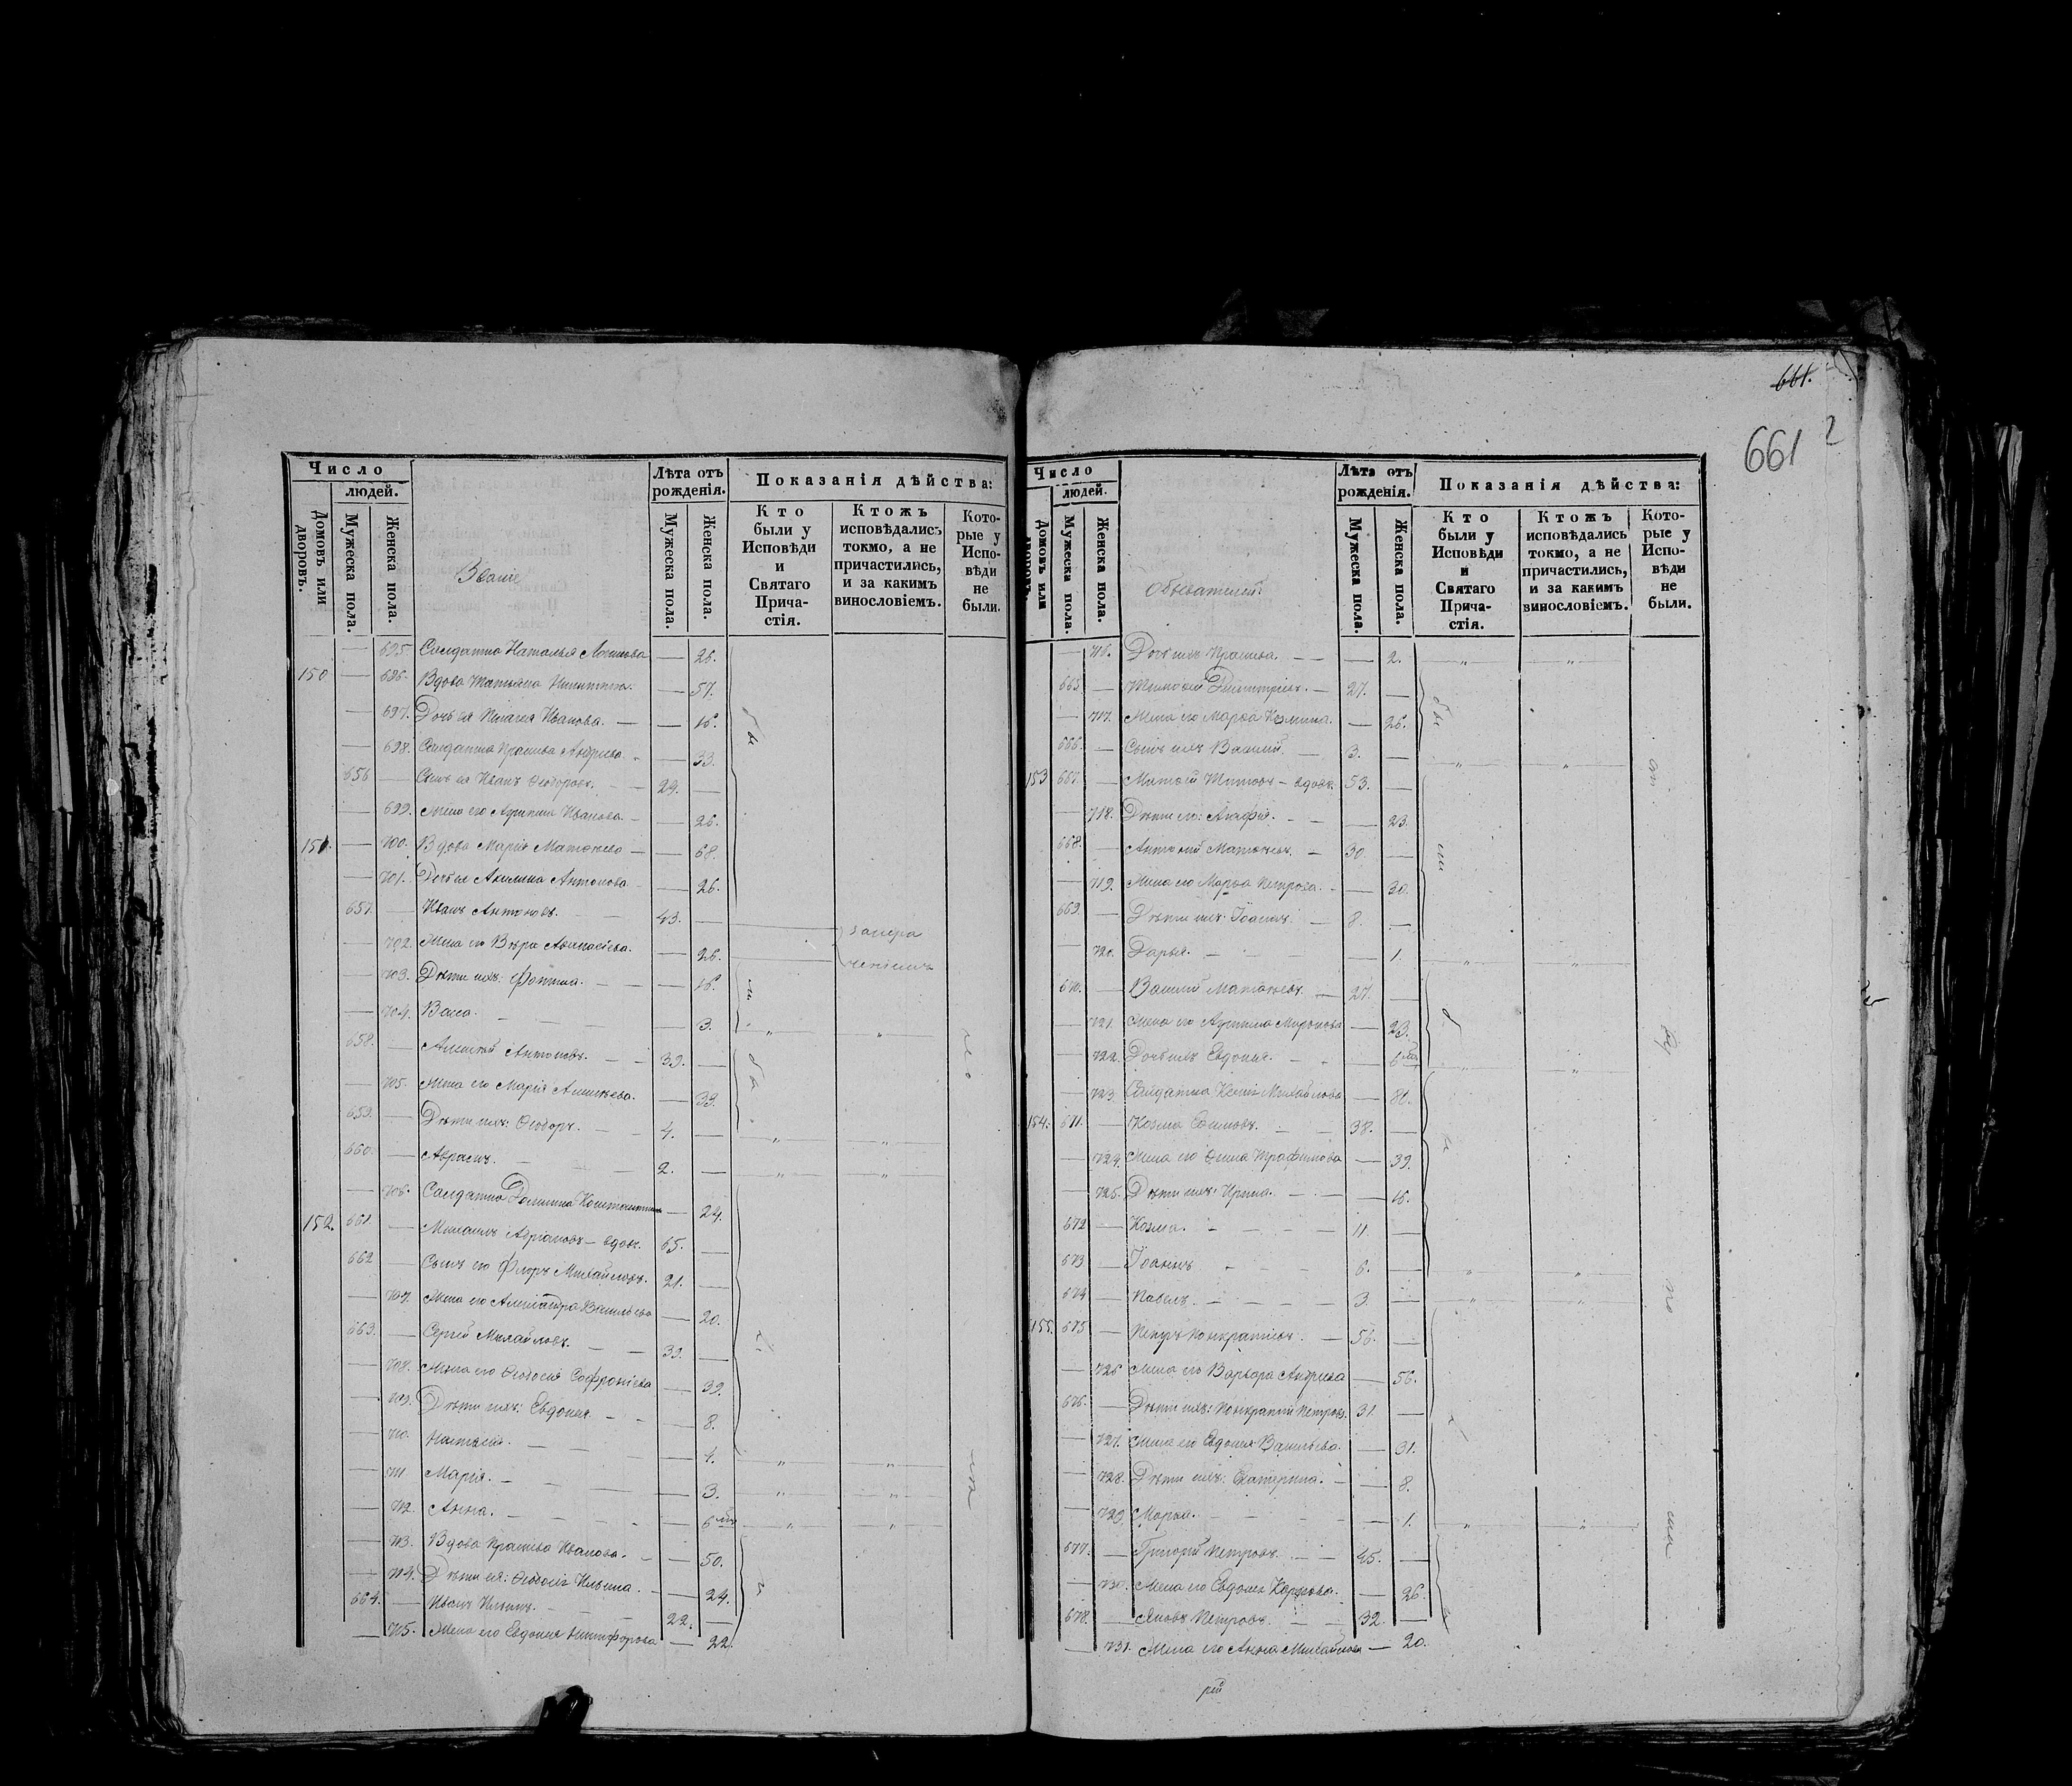 661.
661
2
Число
людей.
Домовъ или дворовъ.
Мужеска пола.
Женска пола.
Званіе
Лѣта отъ рожденія.
Мужеска пола.
Женска пола.
Показанія дѣйства:
Кто были у Исповѣди и Святаго Причастія.
Ктожъ исповѣдались токмо, а не причастились, и за какимъ винословіемъ.
Которые у Исповѣди не были.
— 695. Солдатка Наталья — 26.
150 — 696. Вдова Татьяна Никитина. — 57.
— 697. Дочь ея Пелагея Иванова. — 16.
— 698. Солдатка — 33.
656 — Сынъ ея Иванъ Ѳеодоровъ. 29. —
— 699. Жена его Иванова — 26.
151. — 700. Вдова Марія Матѳеева — 68.
— 701. Дочь ея Акилина Антонова — 26.
657. — Иванъ Антоновъ. 43. —
— 702. Жена его Вѣра — 26.
— 703. Дѣти ихъ: — 16.
— 704. Васса. — 3.
658. — Алексѣй Антоновъ. 39. —
— 705. Жена его Марія Алексѣева. — 39.
659. — Дѣти ихъ: Ѳеодоръ. 4. —
660. — Аврамъ. 2. —
— 706. Солдатка Домника — 24.
152. 661. — Михаилъ — вдовъ. 65. —
662 — Сынъ его Флоръ Михайловъ. 21. —
— 707. Жена его Александра Васильева — 20.
663. — Сергей Михайловъ. 39. —
— 708. Жена его Ѳеодосія Софроніева — 39.
— 709. Дѣти ихъ: Евдокея. — 8.
— 710. — 4.
— 711 Марія. — 3.
— 712. Анна. — 6
— 713. Вдова Иванова. — 50.
— 714. Дѣти ея: Ѳеодосія Ильина. — 24.
664. — Иванъ Ильинъ. 22. —
— 715. Жена его Евдокея Никифорова — 22.
Число
людей.
Домовъ или дворовъ.
Мужеска пола.
Женска пола.
Обывателей:
Лѣта отъ рожденія.
Мужеска пола.
Женска пола.
Показанія дѣйства:
Кто были у Исповѣди и Святаго Причастія.
Ктожъ исповѣдались токмо, а не причастились, и за какимъ винословіемъ.
Которые у Исповѣди не были.
— 716. Дочь ихъ — 2.
665 — Тимоѳей Димитріевъ. 27. —
— 717. Жена его Марѳа Козмина. — 26.
666. — Сынъ ихъ Василій. 3. —
153 667. — Матѳей Титовъ — вдовъ. 53. —
— 718. Дѣти его: Агафія. — 23.
668. — Антоній Матѳеевъ. 30. —
— 719. Жена его Марѳа Петрова. — 30.
669. — Дѣти ихъ: Іоаннъ. 8. —
— 720. Дарья. — 1.
670. — Василій Матѳеевъ. 27. —
— 721. Жена его Миронова — 23.
— 722. Дочь ихъ Евдокея. — 6
— 723. Солдатка Ксенія Михайлова — 80.
154. 671. — Козма Ефимовъ. 38. —
— 724. Жена его Трофимова — 39.
— 725. Дѣти ихъ: Ирина. — 16.
672 — Козма. 11. —
673 — Іоаннъ 6. —
674 — Павелъ. 3. —
155. 675 — Петръ Понкратіевъ. 56. —
— 726 Жена его Варвара Андреева — 56.
676. — Дѣти ихъ: Понкратій Петровъ. 31. —
— 727. Жена его Евдокея Васильева. — 31.
— 728. Дѣти ихъ: Екатерина. — 8.
— 729 Марѳа. — 1.
677. — Григорій Петровъ. 45. —
— 730. Жена его Евдокея — 26.
678. — Яковъ Петровъ. 32. —
— 731. Жена его Анна Михайлова — 20.